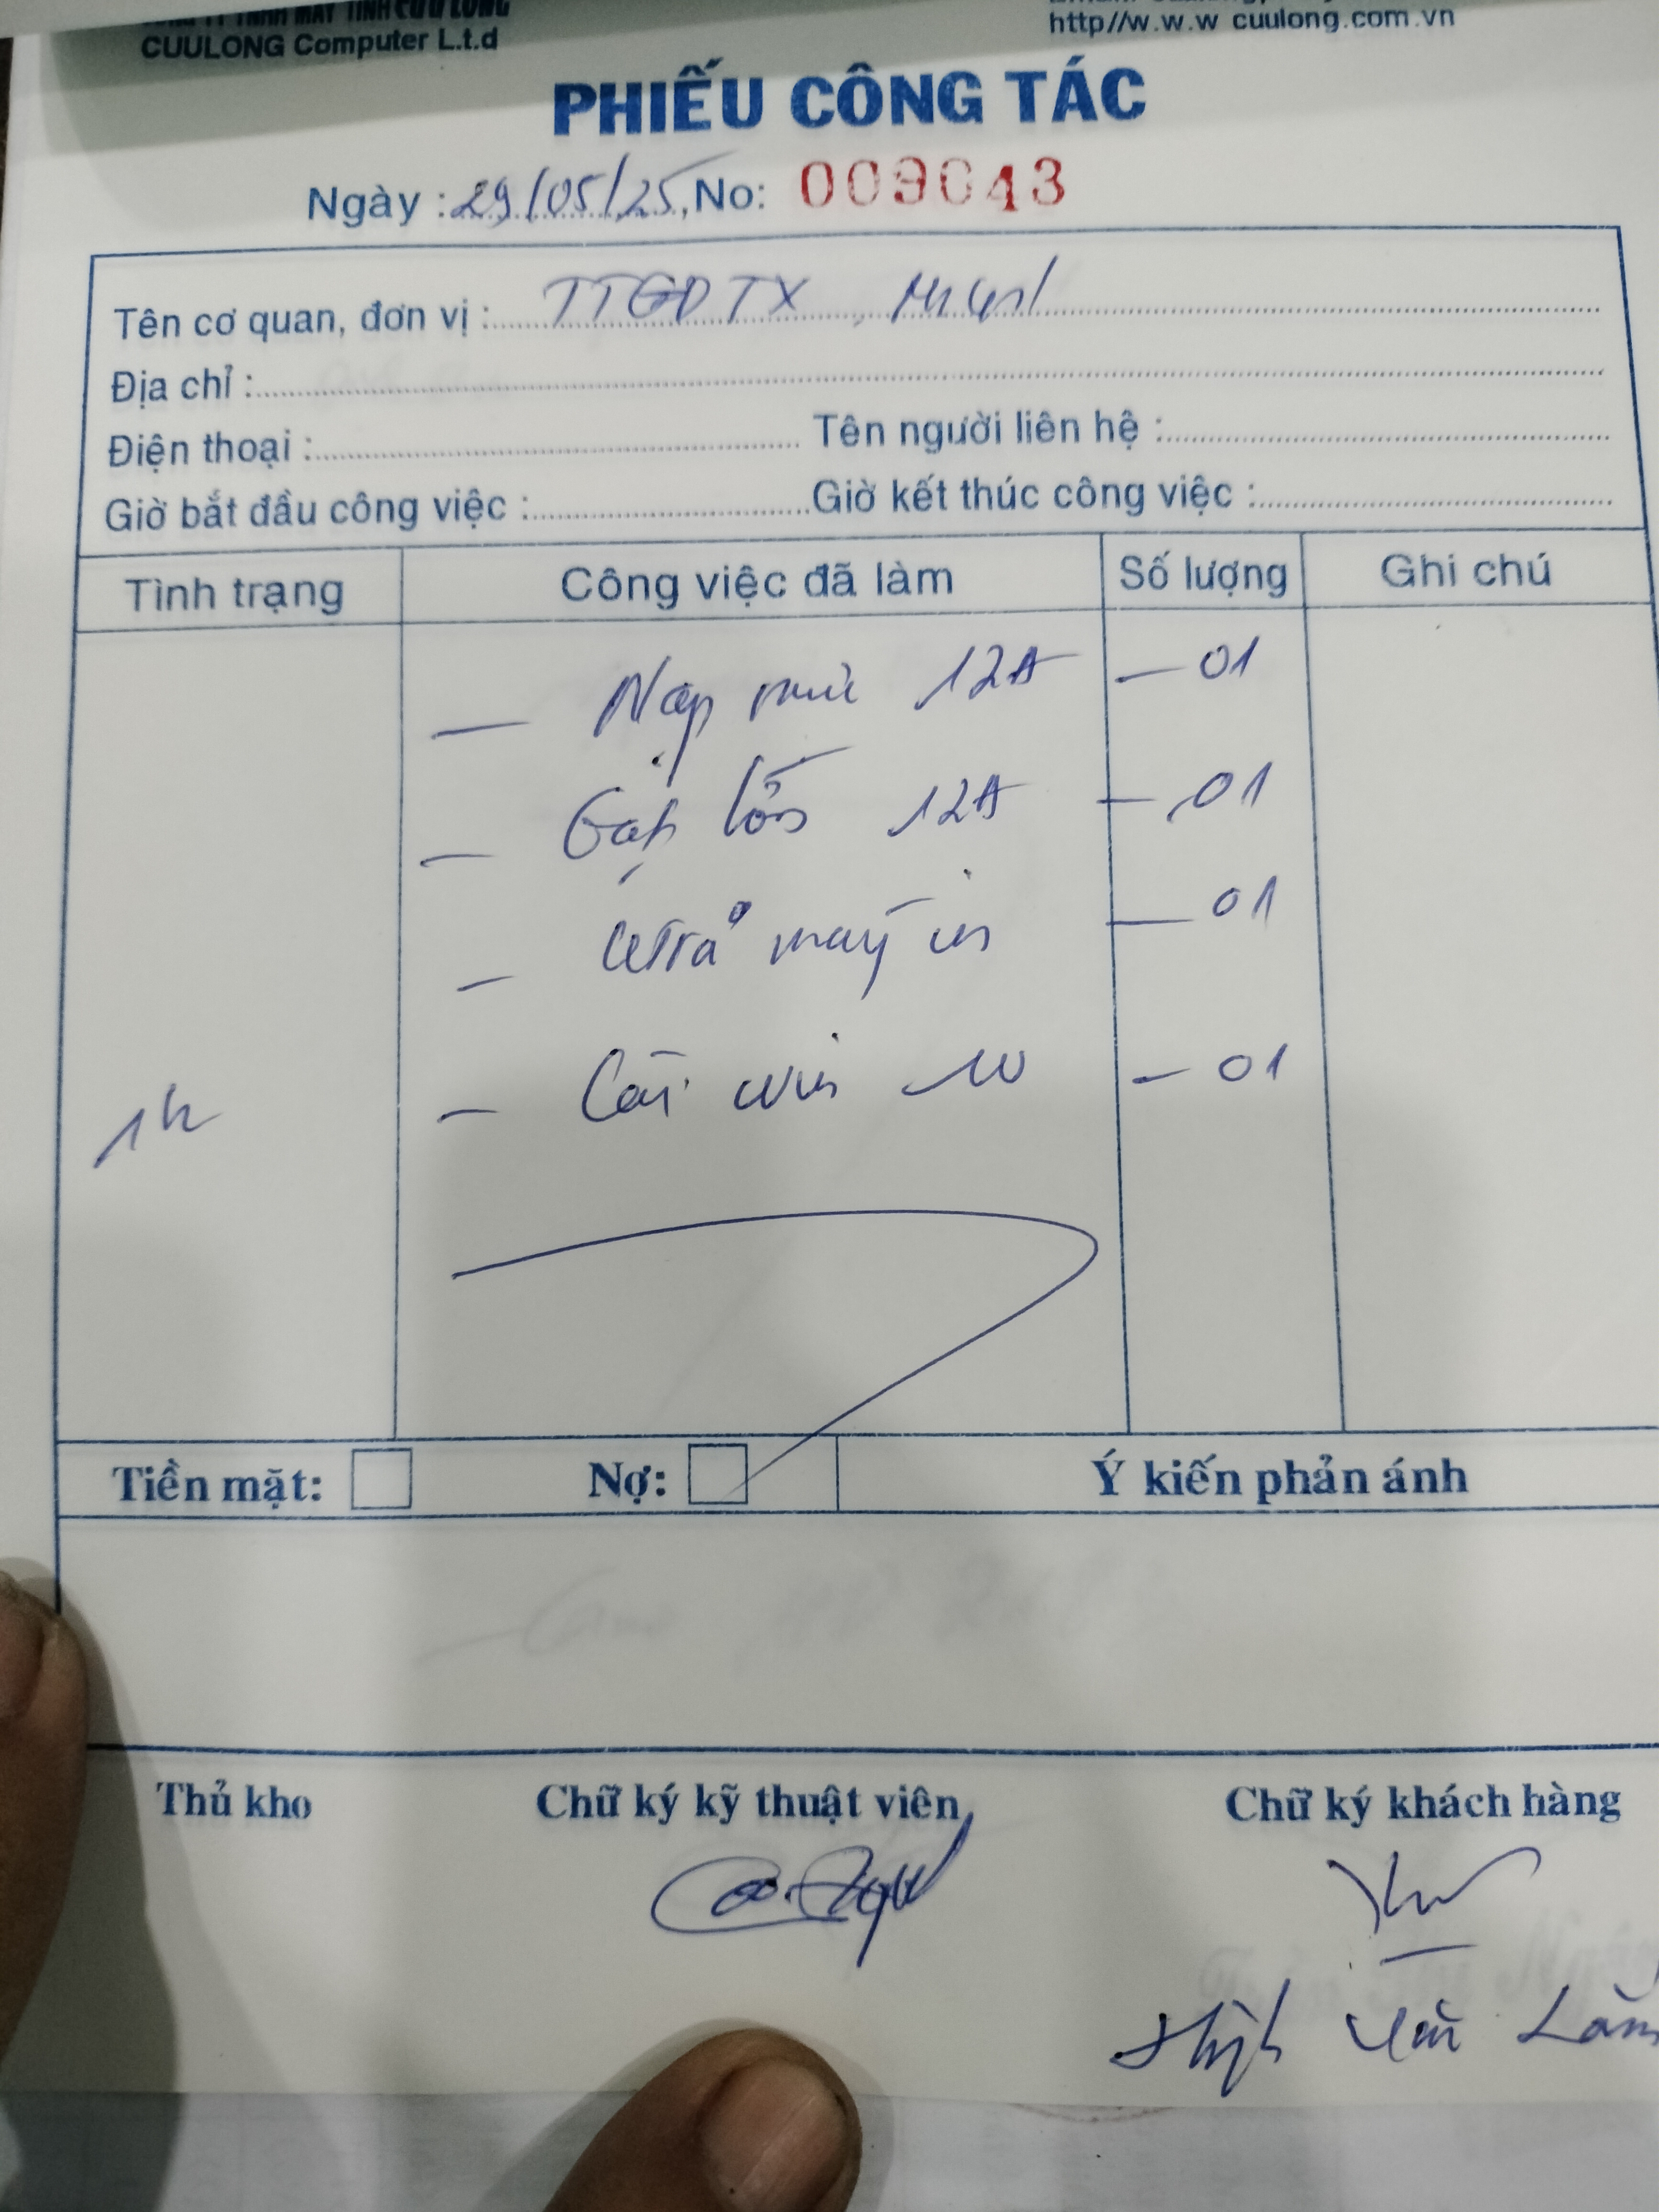 CÔNG TY TNHH MÁY TÍNH CỬU LONG
CUULONG Computer L.t.d
http//w.w.w cuulong.com.vn
PHIẾU CÔNG TÁC
Ngày : 29/05/25, No: 009043
Tên cơ quan, đơn vị : TTGDTX
Địa chỉ :
Điện thoại : Tên người liên hệ :
Giờ bắt đầu công việc : Giờ kết thúc công việc :
Tình trạng Công việc đã làm Số lượng Ghi chú
— Nạp mực 12A — 01
— 12A — 01
— máy in — 01
1h — Cài win 10 — 01
Tiền mặt: Nợ: Ý kiến phản ánh
Thủ kho Chữ ký kỹ thuật viên Chữ ký khách hàng